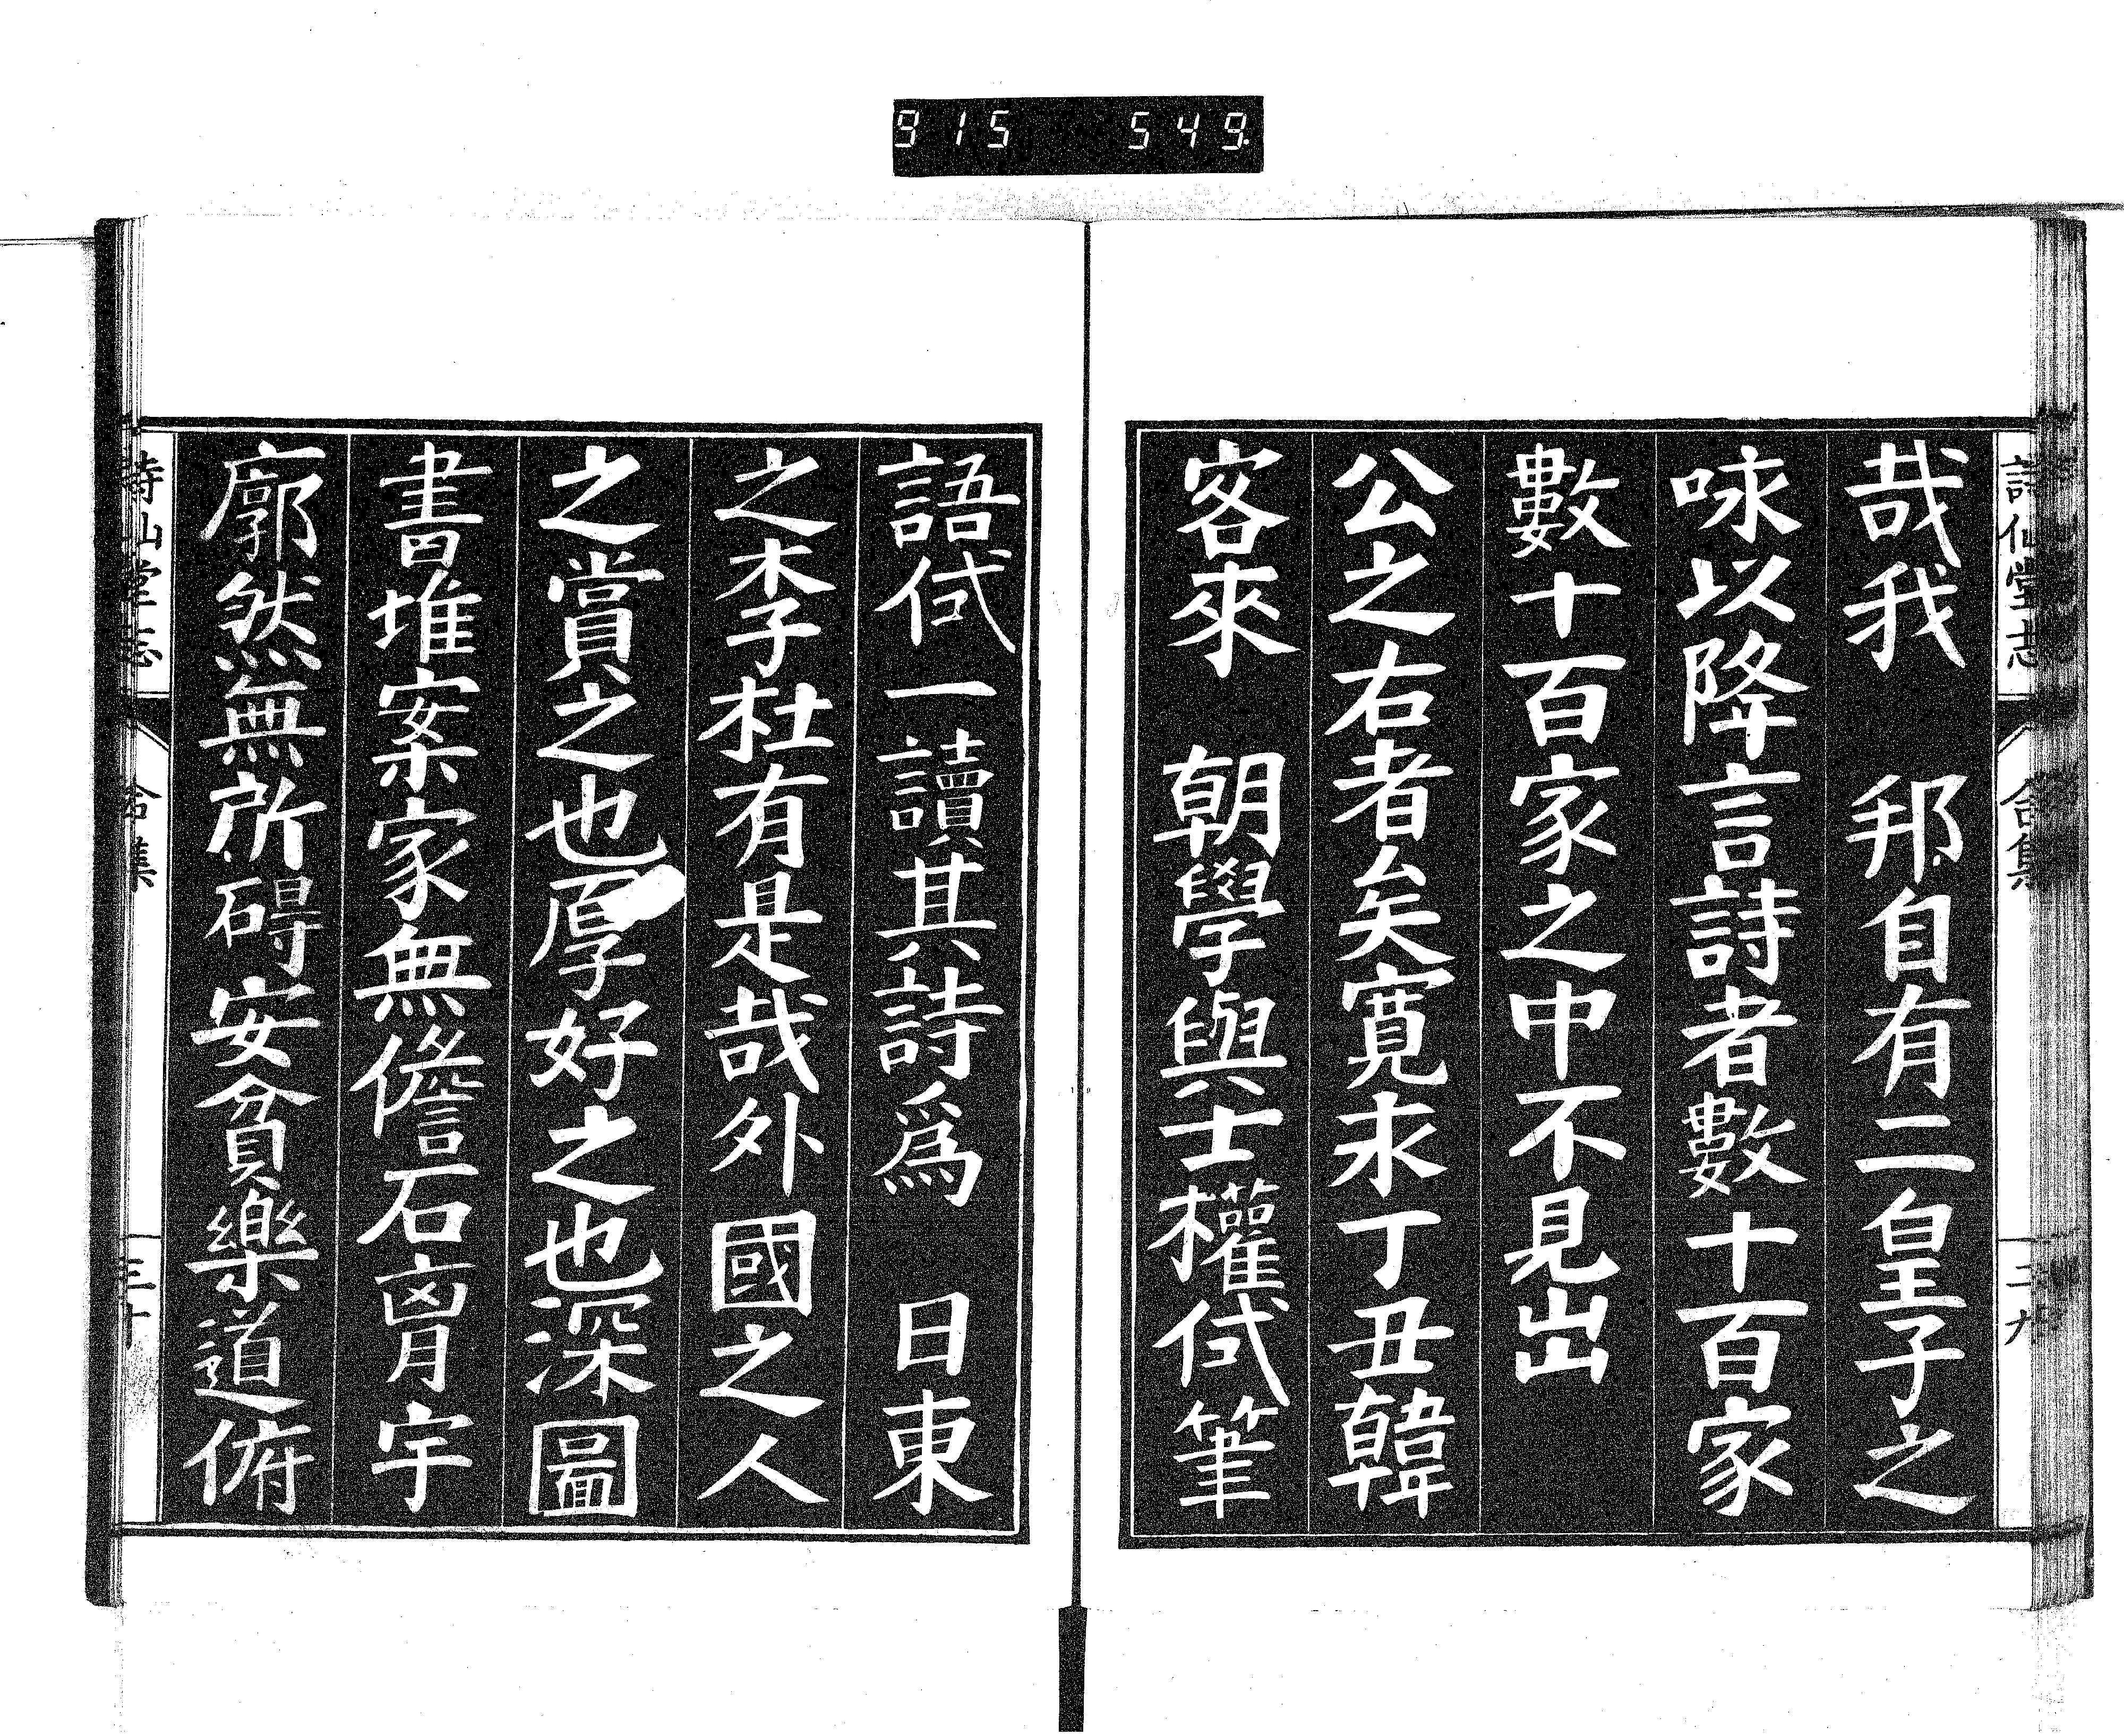 915 549
詩仙堂志
哉我　邦自有二皇子之
咏以降言詩者數十百家
數十百家之中不見出
公之右者矣寛求丁丑韓
客來　朝學與士權侙筆
語侙一讀其詩爲　日東
之李杜有是哉外國之人
之賞之也厚好之也深圖
書堆案家無儋石胷宇
廓然無所碍安貧樂道俯
詩仙堂志